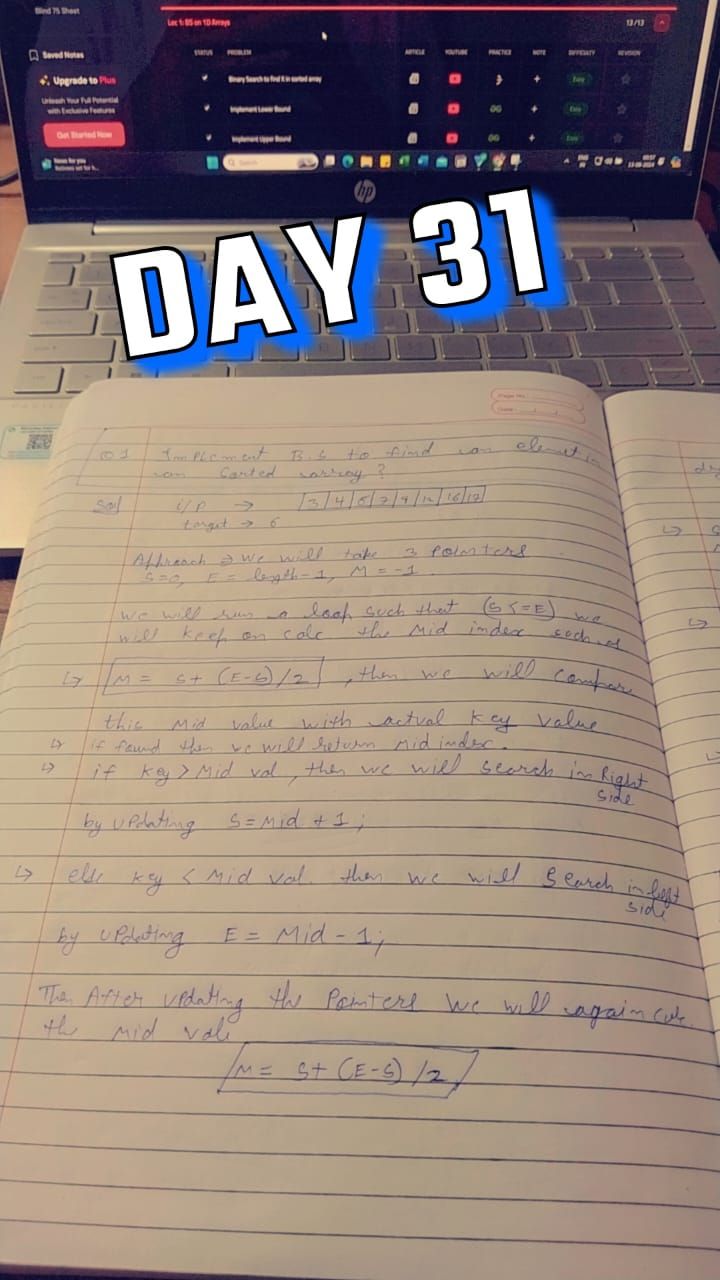 Blind 75 Sheet
Lec 1: BS on 1D Arrays
13/13
Saved Notes
STATUS PROBLEM ARTICLE YOUTUBE PRACTICE NOTE DIFFICULTY REVISION
Upgrade to Plus
Binary Search to find X in sorted array
Easy
Unleash Your Full Potential
with Exclusive Features
Implement Lower Bound
Easy
Get Started Now
Implement Upper Bound
Easy
News for you
Search
hp
DAY 31
Page No.
Date
Q1 Implement B.S to find an element in
an Sorted array?
Sol i/p →
target → 6
Approach ⇒ We will take 3 Pointers
S=0, E = length-1, M = -1
We will run a loop such that (S<=E) we
will keep on calc the Mid index such as
↳ M = S+ (E-S)/2 , then we will compare
this Mid value with actual key value
↳ if found then we will return mid index.
↳ if key > Mid val, then we will search in Right
side
by updating S = Mid + 1 ;
↳ else key < Mid val. then we will Search in left
side
by updating E = Mid - 1;
The After updating the Pointers we will again calc.
the mid vale
M = S+ (E-S) /2